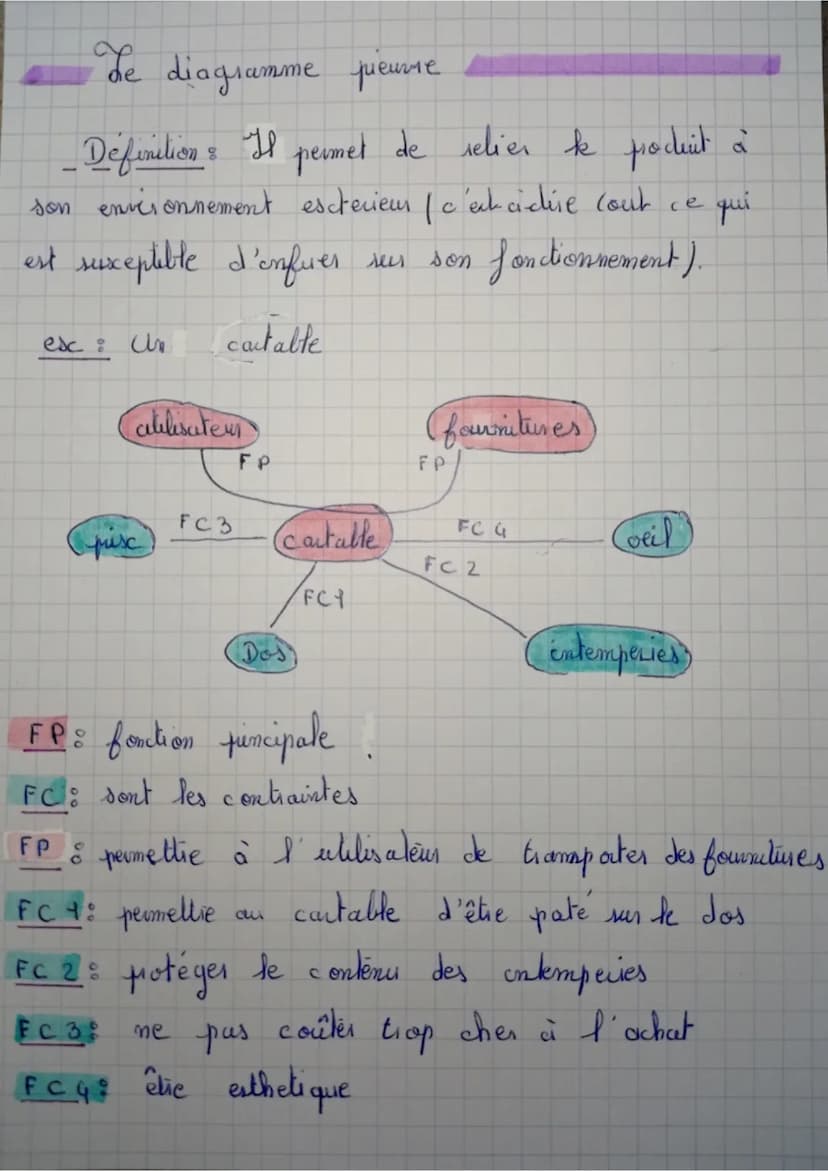 Le diagramme pieuvre
_ Définition : Il permet de relier le produit à
son environnement exterieur (c'est à dire tout ce qui
est susceptible d'enfluer sur son fonctionnement).
ex : Un cartable
utilisateur fournitures
FP FP
prix FC3 cartable FC4 oeil
FC2
FC1
Dos intemperies
FP : fonction principale .
FC : sont les contraintes
FP : permettre à l'utilisateur de transporter des fournitures
FC1 : permettre au cartable d'être porté sur le dos
FC2 : protéger le contenu des intemperies
FC3 : ne pas coûter trop cher à l'achat
FC4 : être esthetique